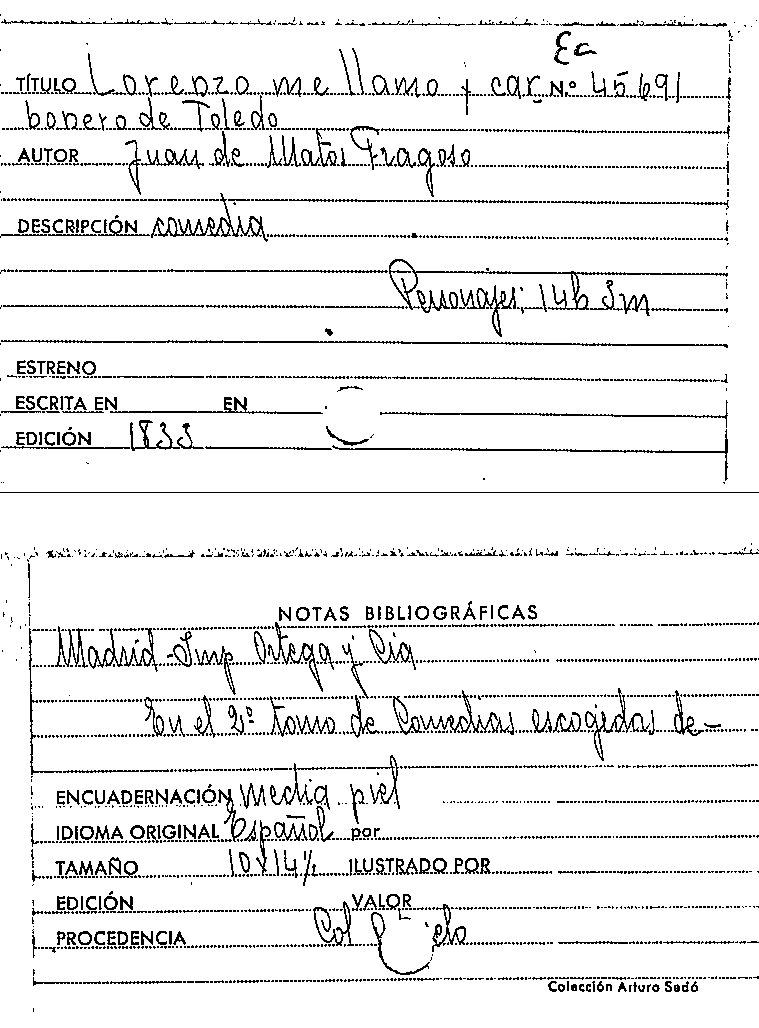 Ea
TÍTULO Lorenzo me llamo y car N.º 45691
bonero de Toledo
AUTOR Juan de Matos Fragoso
DESCRIPCIÓN comedia
Personajes: 14h 3m
ESTRENO
ESCRITA EN EN
EDICIÓN 1833
NOTAS BIBLIOGRÁFICAS
Madrid - Imp Ortega y Cia
En el 2º tomo de Comedias escogidas de-
ENCUADERNACIÓN media piel
IDIOMA ORIGINAL Español por
TAMAÑO 10x14½ ILUSTRADO POR
EDICIÓN VALOR
PROCEDENCIA Col
Colección Arturo Sedó